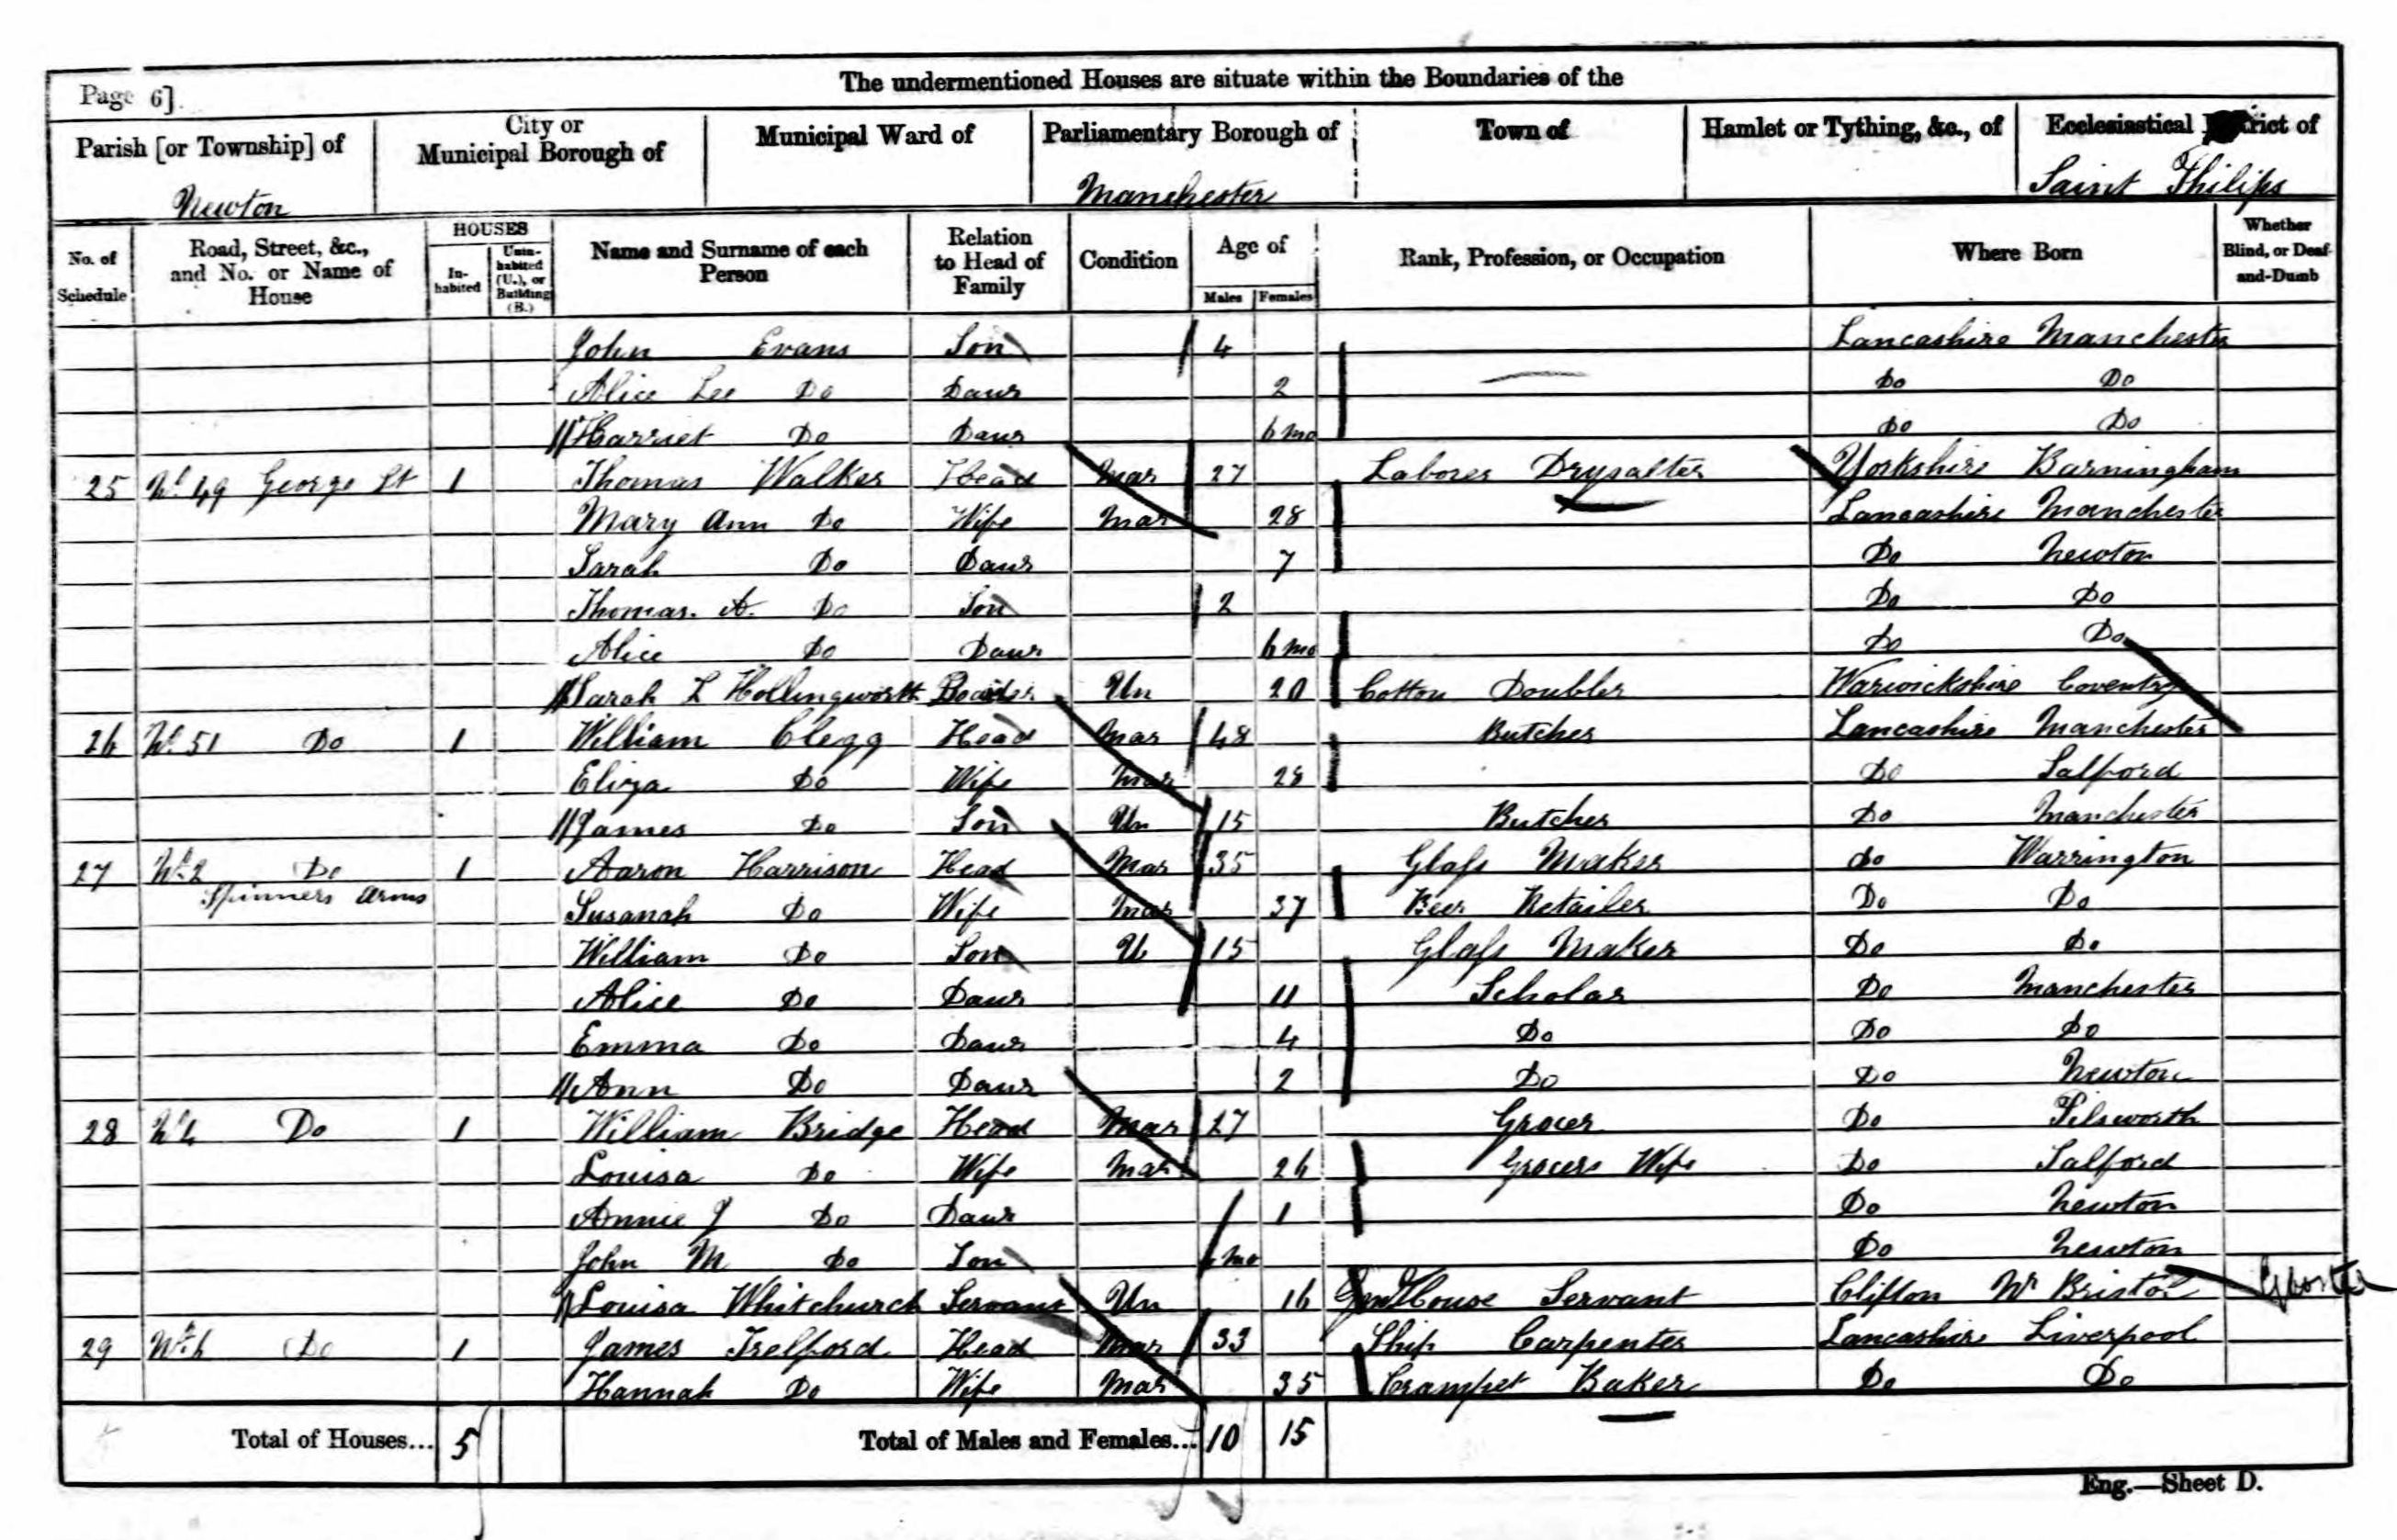 The undermentioned Houses are situate within the Boundaries of the
Page 6].
Parish [or Township] of City or Municipal Borough of Municipal Ward of Parliamentary Borough of Town of Hamlet or Tything, &c., of Ecclesiastical of
Newton Manchester Saint Philips
No. of Schedule Road, Street, &c., and No. or Name of House HOUSES In-habited Unin-habited (U.), or Building (B.) Name and Surname of each Person Relation to Head of Family Condition Age of Males Females Rank, Profession, or Occupation Where Born Whether Blind, or Deaf-and-Dumb
John Evans Son 4 Lancashire Manchester
Alice Lee Do Daur 2 Do Do
Harriet Do Daur 6 mo Do Do
25 No 49 George St 1 Thomas Walker Head Mar 27 Laborer Drysalter Yorkshire Barningham
Mary Ann Do Wife Mar 28 Lancashire Manchester
Sarah Do Daur 7 Do Newton
Thomas. A. Do Son 2 Do Do
Alice Do Daur 6 mo Do Do
Sarah L Hollingworth Boarder Un 20 Cotton Doubler Warwickshire Coventry
26 No 51 Do 1 William Clegg Head Mar 48 Butcher Lancashire Manchester
Eliza Do Wife Mar 28 Do Salford
James Do Son Un 15 Butcher Do Manchester
27 No 2 Do 1 Aaron Harrison Head Mar 35 Glass Maker Do Warrington
Spinners Arms Susanah Do Wife Mar 37 Beer Retailer Do Do
William Do Son U 15 Glass Maker Do Do
Alice Do Daur 11 Scholar Do Manchester
Emma Do Daur 4 Do Do Do
Ann Do Daur 2 Do Do Newton
28 No 4 Do 1 William Bridge Head Mar 27 Grocer Do Pilsworth
Louisa Do Wife Mar 26 Grocers Wife Do Salford
Annie J Do Daur 1 Do Newton
John M Do Son mo Do Newton
Louisa Whitchurch Servant Un 16 House Servant Clifton Nr Bristol
29 No 6 Do 1 James Trelford Head Mar 33 Ship Carpenter Lancashire Liverpool
Hannah Do Wife Mar 35 Crampet Baker Do Do
Total of Houses... 5 Total of Males and Females... 10 15
Eng.—Sheet D.